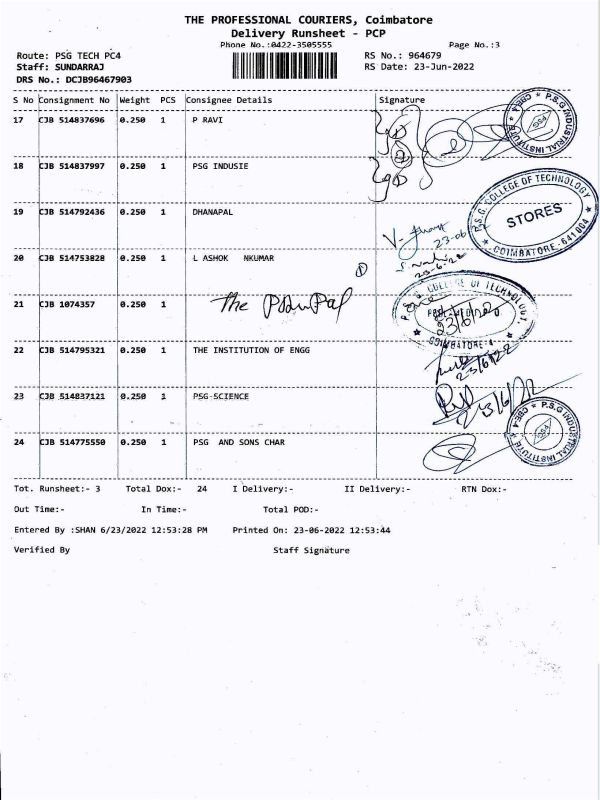 THE PROFESSIONAL COURIERS, Coimbatore
Delivery Runsheet - PCP
Phone No.:0422-3505555
Page No.:3
Route: PSG TECH PC4
RS No.: 964679
Staff: SUNDARRAJ
RS Date: 23-Jun-2022
DRS No.: DCJB96467903
S No Consignment No Weight PCS Consignee Details Signature
17 CJB 514837696 0.250 1 P RAVI
P.S.G INDUSTRIAL INSTITUTE CBE-4
PSG
18 CJB 514837997 0.250 1 PSG INDUSIE
P.S.G. COLLEGE OF TECHNOLOGY
STORES
COIMBATORE-641 004
19 CJB 514792436 0.250 1 DHANAPAL
23-06
20 CJB 514753828 0.250 1 L ASHOK NKUMAR
23-6-22
P.S.G. COLLEGE OF TECHNOLOGY.
COIMBATORE-4
21 CJB 1074357 0.250 1 The
23/6/2022
22 CJB 514795321 0.250 1 THE INSTITUTION OF ENGG
23/6/22
23 CJB 514837121 0.250 1 PSG-SCIENCE
23/6/22
24 CJB 514775550 0.250 1 PSG AND SONS CHAR
P.S.G INDUSTRIAL INSTITUTE CBE-4
PSG
Tot. Runsheet:- 3 Total Dox:- 24 I Delivery:- II Delivery:- RTN Dox:-
Out Time:- In Time:- Total POD:-
Entered By :SHAN 6/23/2022 12:53:28 PM Printed On: 23-06-2022 12:53:44
Verified By Staff Signature